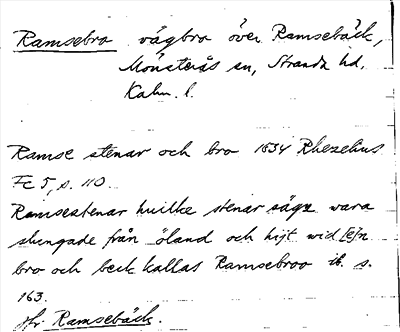 Ramsebro vägbro över Ramsebäck,
Mönsterås sn, Stranda hd,
Kalm. l.
Ramse stenar och bro 1634 Rhezelius
Fc 5, s. 110.
Ramsestenar huilke stenar säges wara
slungade från öland och hijt wid [e]n
bro och beck kallas Ramsebroo ib. s.
163.
Jfr Ramsebäck.